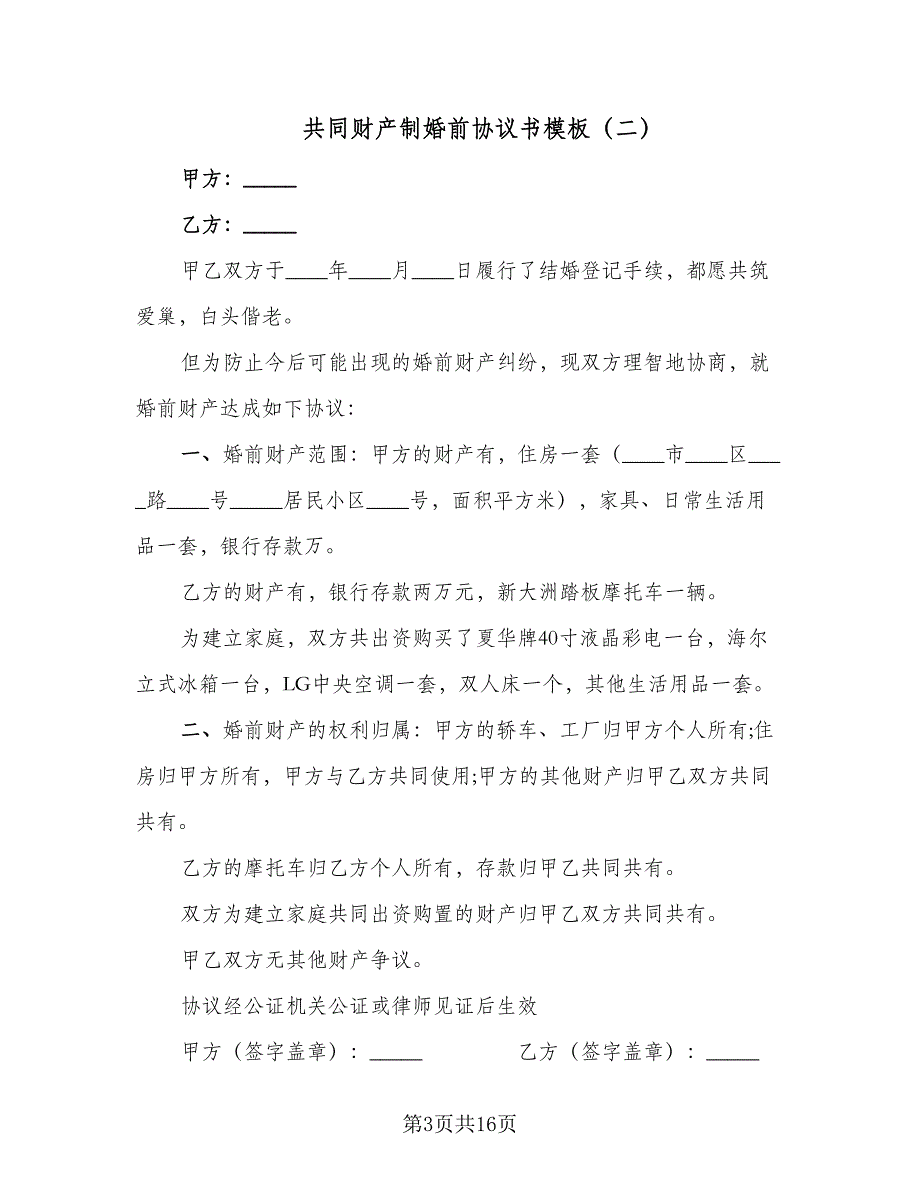 共同财产制婚前协议书模板（二）
甲方：_____
乙方：_____
甲乙双方于____年____月____日履行了结婚登记手续，都愿共筑
爱巢，白头偕老。
但为防止今后可能出现的婚前财产纠纷，现双方理智地协商，就
婚前财产达成如下协议：
一、婚前财产范围：甲方的财产有，住房一套（____市____区___
_路____号_____居民小区____号，面积平方米），家具、日常生活用
品一套，银行存款万。
乙方的财产有，银行存款两万元，新大洲踏板摩托车一辆。
为建立家庭，双方共出资购买了夏华牌40寸液晶彩电一台，海尔
立式冰箱一台，LG中央空调一套，双人床一个，其他生活用品一套。
二、婚前财产的权利归属：甲方的轿车、工厂归甲方个人所有;住
房归甲方所有，甲方与乙方共同使用;甲方的其他财产归甲乙双方共同
共有。
乙方的摩托车归乙方个人所有，存款归甲乙共同共有。
双方为建立家庭共同出资购置的财产归甲乙双方共同共有。
甲乙双方无其他财产争议。
协议经公证机关公证或律师见证后生效
甲方（签字盖章）：_____ 乙方（签字盖章）：_____
第3页共16页